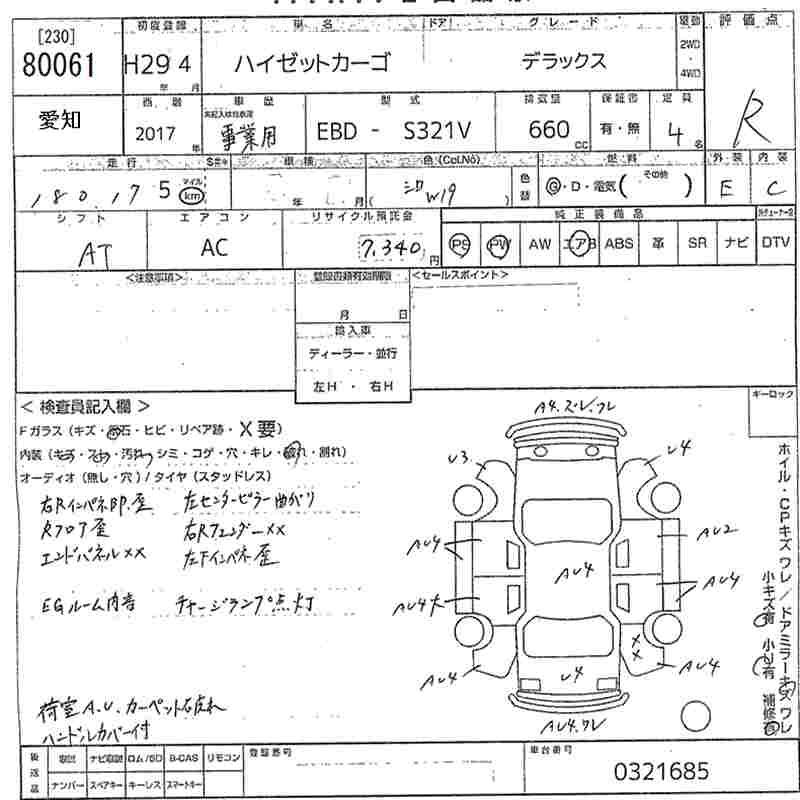 [230]
80061
初度登録
車名
ドア
グレード
駆動
評価点
H29 4
年 月
ハイゼットカーゴ
デラックス
2WD
4WD
R
愛知
西暦
2017 年
車歴
事業用
型式
EBD - S321V
排気量
660 cc
保証書
有・無
定員
4 名
走行
車検
色(Col.No)
燃料
外装
内装
180,175
マイル
km
年 月
シロ W19
色替
G・D・電気( その他 )
E
C
シフト
エアコン
リサイクル預託金
純正装備品
AT
AC
7,340 円
PS
PW
AW
エアB
ABS
革
SR
ナビ
DTV
<注意事項>
登録書類有効期限
<セールスポイント>
月 日
輸入車
ディーラー・並行
左H ・ 右H
< 検査員記入欄 >
キーロック
Fガラス(キズ・飛石・ヒビ・リペア跡・X要)
内装(キズ・スレ・汚れ・シミ・コゲ・穴・キレ・破れ・割れ)
オーディオ(無し・穴)/タイヤ(スタッドレス)
右Rインパネ凹.歪 左センターピラー曲がり
Rフロア歪 右Rフェンダーxx
エンドパネルxx 左Fインパネ歪
EGルーム内音 チャージランプ点灯
荷室A.U.カーペット破れ
ハンドルカバー付
A4.ズレ.ワレ
U3
U4
AU4
AU2
AU4
AU4
AU4大
AU4
xx
AU4
U4
AU4
AU4.ワレ
ホイル・CPキズ ワレ/ドアミラーキズ ワレ
小キズ有 小U有 補修有
後返品
取説
ナビ取説
ロム/SD
B-CAS
リモコン
登録番号
車台番号
ナンバー
スペアキー
キーレス
スマートキー
0321685